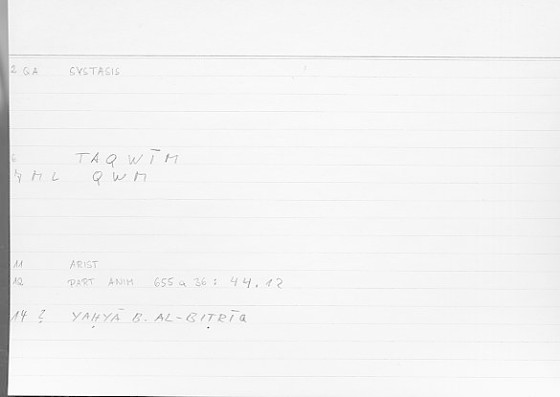 2 QA SVSTASIS
6 TAQWĪM
7 ML QWM
11 ARIST
12 PART ANIM 655a36: 44.12
14 YAḤYĀ B. AL-BIṬRĪQ